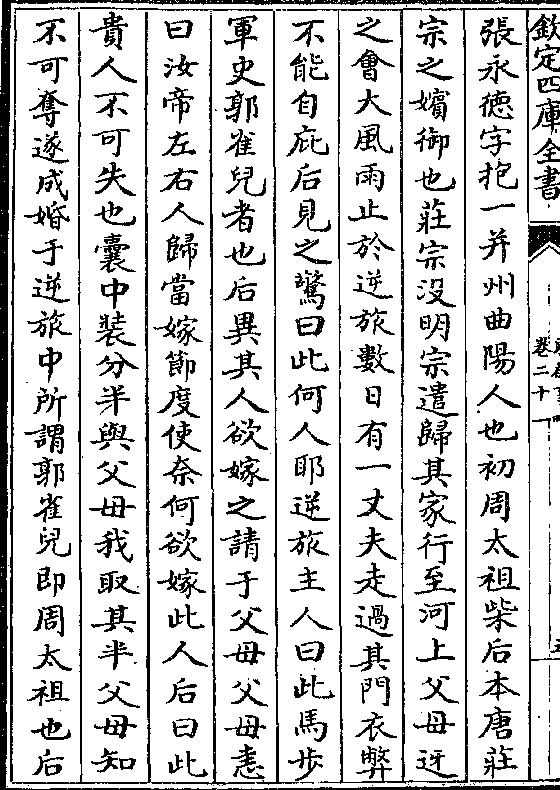 欽定四庫全書
卷二十
張永徳字抱一并州曲陽人也初周太祖柴后本唐莊
宗之嬪御也莊宗没明宗遣歸其家行至河上父母迓
之會大風雨止於逆旅數日有一丈夫走過其門衣弊
不能自庇后見之驚曰此何人耶逆旅主人曰此馬步
軍史郭雀兒者也后異其人欲嫁之請于父母父母恚
曰汝帝左右人歸當嫁節度使奈何欲嫁此人后曰此
貴人不可失也囊中裝分半與父母我取其半父母知
不可奪遂成婚于逆旅中所謂郭雀兒即周太祖也后